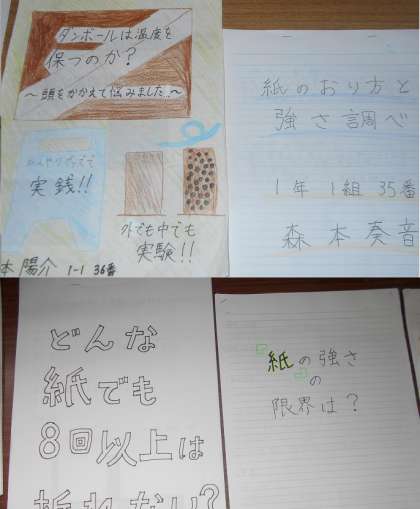 ダンボールは温度を
保つのか?
～頭をかかえて悩みました…～
ひんやりグッズで
実銭!!
外でも中でも
実験!!
本 陽介 1-1 36番
紙のおり方と
強さ調べ
1年1組 35番
森本奏音
どんな
紙でも
8回以上は
折れない?
紙の強さ
の
限界は?